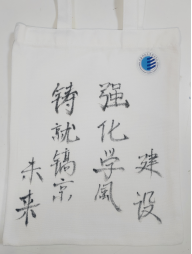 强化学风建设
铸就镐京未来